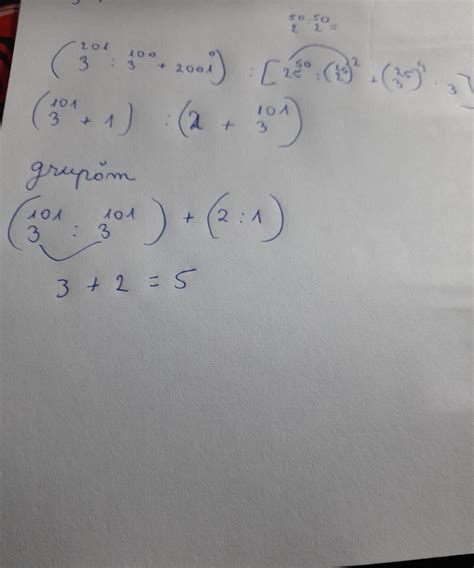 50 50
2 : 2 =
(3^201 : 3^100 + 2001^0) : [2^50 : (2^25)^2 + (3^25)^4 · 3]
(3^101 + 1) : (2 + 3^101)
grupăm
(3^101 : 3^101) + (2 : 1)
3 + 2 = 5